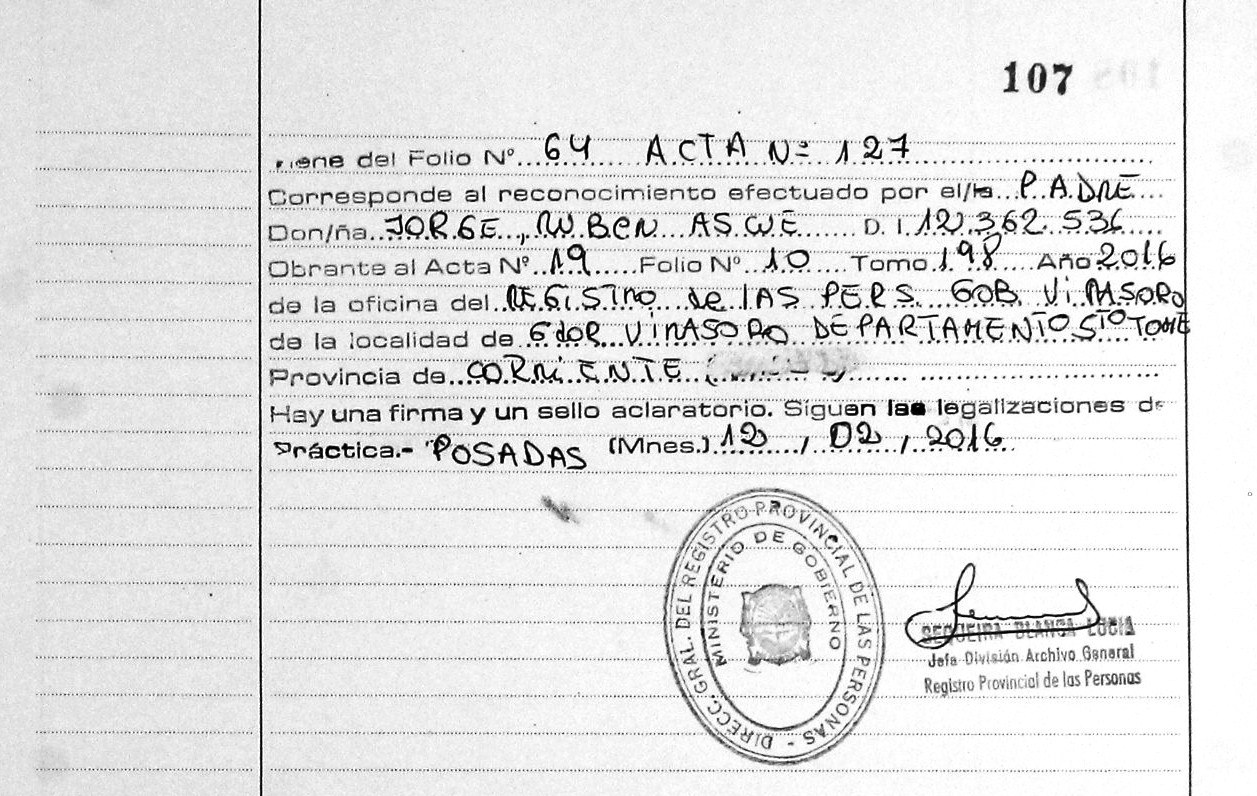 107
Viene del Folio Nº 64 ACTA Nº 127
Corresponde al reconocimiento efectuado por el/la PADRE
Don/ña JORGE, RUBEN D.I. 12.362.536
Obrante al Acta Nº 19 Folio Nº 10 Tomo 198 Año 2016
de la oficina del REGISTRO de lAS PERS. GOB. ViRASORO
de la localidad de GdOR ViRASORO DEPARTAMENTO STO TOME
Provincia de CORRiENTE
Hay una firma y un sello aclaratorio. Siguen las legalizaciones de
Práctica.- POSADAS (Mnes.) 12 / 02 / 2016
DIRECC. GRAL. DEL REGISTRO PROVINCIAL DE LAS PERSONAS -
MINISTERIO DE GOBIERNO
SEQUEIRA BLANCA LUCIA
Jefa División Archivo General
Registro Provincial de las Personas